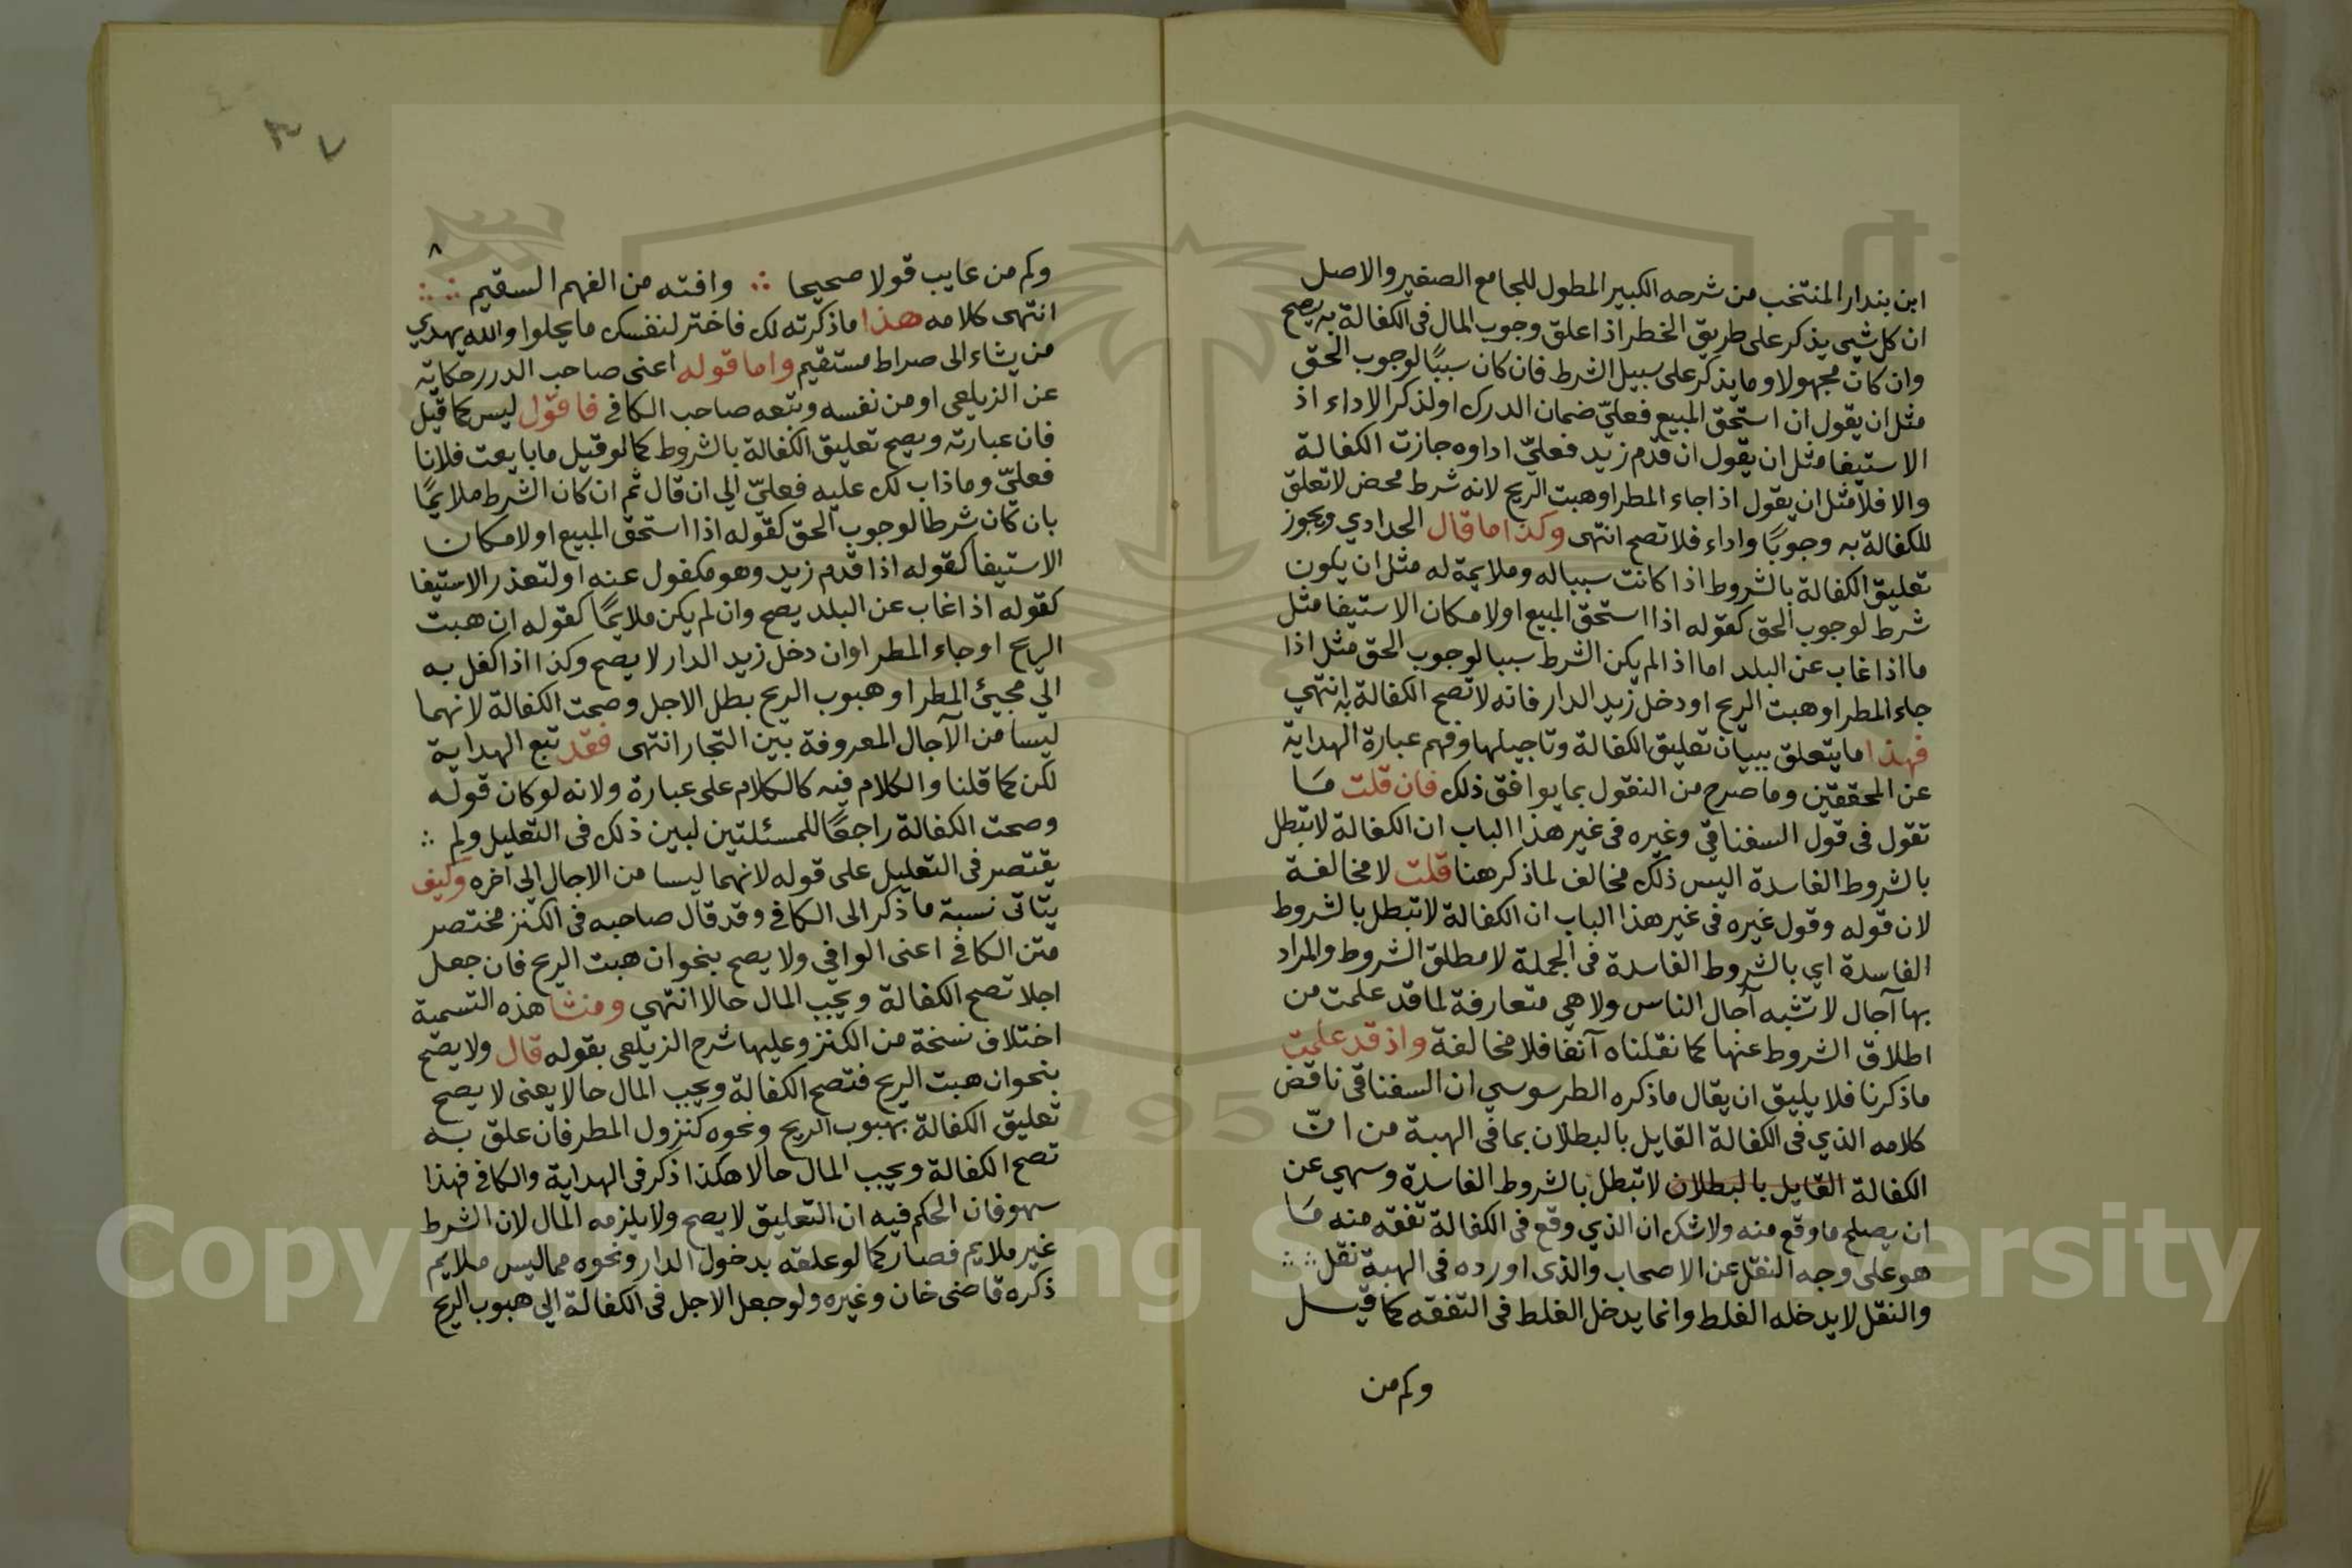 ابن بندار المنتخب من شرحه الكبير المطول للجامع الصغير والاصل
ان كل شيى يذكر على طريق الخطر اذا علق وجوب المال فى الكفالة به يصح
وان كان مجهولا وما يذكر على سبيل الشرط فان كان سببًا لوجوب الحق
مثل ان يقول ان استحق المبيع فعليّ ضمان الدرك اولذكر الاداء اذ
الاستيفا مثل ان يقول ان قدم زيد فعليّ اداوه جازت الكفالة
والا فلا مثل ان يقول اذا جاء المطر او هبت الريح لانه شرط محض لا تعلق
للكفالة به وجوبًا واداء فلا تصح انتهى وكذا ما قال الحدادي ويجوز
تعليق الكفالة بالشروط اذا كانت سبباله وملايمة له مثل ان يكون
شرط لوجوب الحق كقوله اذا استحق المبيع اولامكان الاستيفا مثل
ما اذا غاب عن البلد اما اذا لم يكن الشرط سببا لوجوب الحق مثل اذا
جاء المطر او هبت الريح او دخل زيد الدار فانه لا تصح الكفالة به انتهي
فهذا ما يتعلق ببيان تعليق الكفالة وتاجيلها وفهم عبارة الهداية
عن المحققين وما صرح من النقول بما يوافق ذلك فان قلت مَا
تقول فى قول السغناقي وغيره فى غير هذا الباب ان الكفالة لا تبطل
بالشروط الفاسدة اليس ذلك مخالف لما ذكر هنا قلت لا مخالفة
لان قوله وقول غيره فى غير هذا الباب ان الكفالة لا تبطل بالشروط
الفاسدة اي بالشروط الفاسدة فى الجملة لا مطلق الشروط والمراد
بها آجال لا تشبه آجال الناس ولا هي متعارفة لما قد علمت من
اطلاق الشروط عنها كما نقلناه آنفا فلا مخالفة واذ قد علمت
ماذكرنا فلا يليق ان يقال ماذكره الطرسوسي ان السغناقى ناقض
كلامه الذي فى الكفالة القايل بالبطلان بما فى الهبة من انّ
الكفالة القايل بالبطلان لا تبطل بالشروط الفاسدة وسهي عن
ان يصلح ما وقع منه ولا شك ان الذي وقع فى الكفالة تفقه منه مَا
هو على وجه النقل عن الاصحاب والذى اورده فى الهبة نقل
والنقل لا يدخله الغلط وانما يدخل الغلط فى التفقه كما قيل
وكم من
٣٧
٨
وكم من عايب قولا صحيحا ∴ وافته من الفهم السقيم ∴
انتهى كلامه هذا ماذكرته لك فاختر لنفسك ما يحلوا والله يهدي
من يشاء الى صراط مستقيم واما قوله اعنى صاحب الدرر حكاية
عن الزيلعى او من نفسه وتبعه صاحب الكافي فاقول ليس كما قيل
فان عبارته ويصح تعليق الكفالة بالشروط كما لو قيل ما بايعت فلانا
فعليّ وما ذاب لك عليه فعليّ الي ان قال ثم ان كان الشرط ملايمًا
بان كان شرطا لوجوب الحق كقوله اذا استحق المبيع اولامكان
الاستيفا كقوله اذا قدم زيد وهو مكفول عنه اولتعذر الاستيفا
كقوله اذا غاب عن البلد يصح وان لم يكن ملايمًا كقوله ان هبت
الريح او جاء المطر او ان دخل زيد الدار لا يصح وكذا اذا كفل به
الي مجيئ المطر او هبوب الريح بطل الاجل وصحت الكفالة لانهما
ليسا من الآجال المعروفة بين التجار انتهى فقد تبع الهداية
لكن كما قلنا والكلام فيه كالكلام على عبارة ولانه لو كان قوله
وصحت الكفالة راجعًا للمسئلتين لبين ذلك فى التعليل ولم ∴
يقتصر فى التعليل على قوله لانهما ليسا من الاجال الي آخره وكيف
يتاتى نسبة ما ذكر الى الكافي وقد قال صاحبه فى الكنز مختصر
متن الكافي اعنى الوافي ولا يصح بنحو ان هبت الريح فان جعل
اجلا تصح الكفالة ويجب المال حالا انتهي ومنشا هذه التسمية
اختلاف نسخة من الكنز وعليها شرح الزيلعى بقوله قال ولا يصح
بنحو ان هبت الريح فتصح الكفالة ويجب المال حالا يعنى لا يصح
تعليق الكفالة بهبوب الريح ونحوه كنزول المطر فان علق به
تصح الكفالة ويجب المال حالا هكذا ذكر فى الهداية والكافي فهذا
سهو فان الحكم فيه ان التعليق لا يصح ولا يلزمه المال لان الشرط
غير ملايم فصار كما لو علقه بدخول الدار ونحوه مما ليس ملايم
ذكره قاضى خان وغيره ولو جعل الاجل فى الكفالة الي هبوب الريح
Copyright © King Saud University
1957